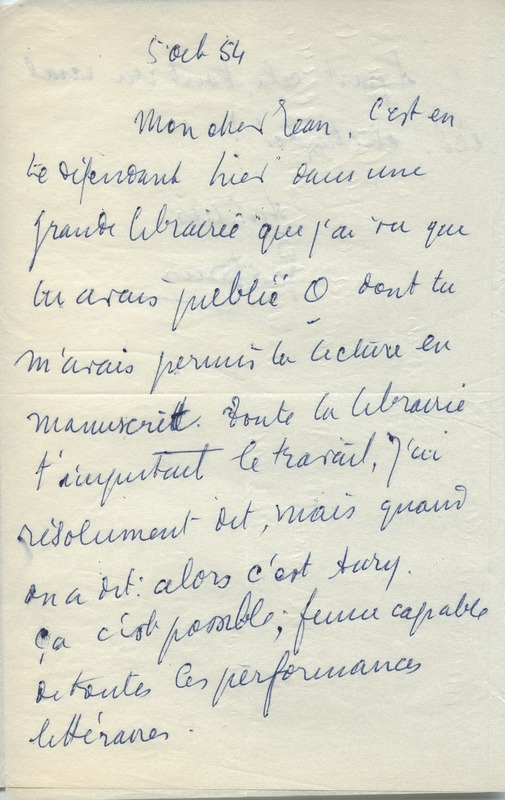 5 oct 54
Mon cher Jean. C'est en
te défendant hier dans une
grande librairie que j'ai vu que
tu avais publié O dont tu
m'avais permis la lecture en
manuscrit. Toute la librairie
t'imputant le travail, j'ai
résolument dit, mais quand
on a dit: alors c'est Aury.
ça c'est possible; femme capable
de toutes les performances
littéraires.